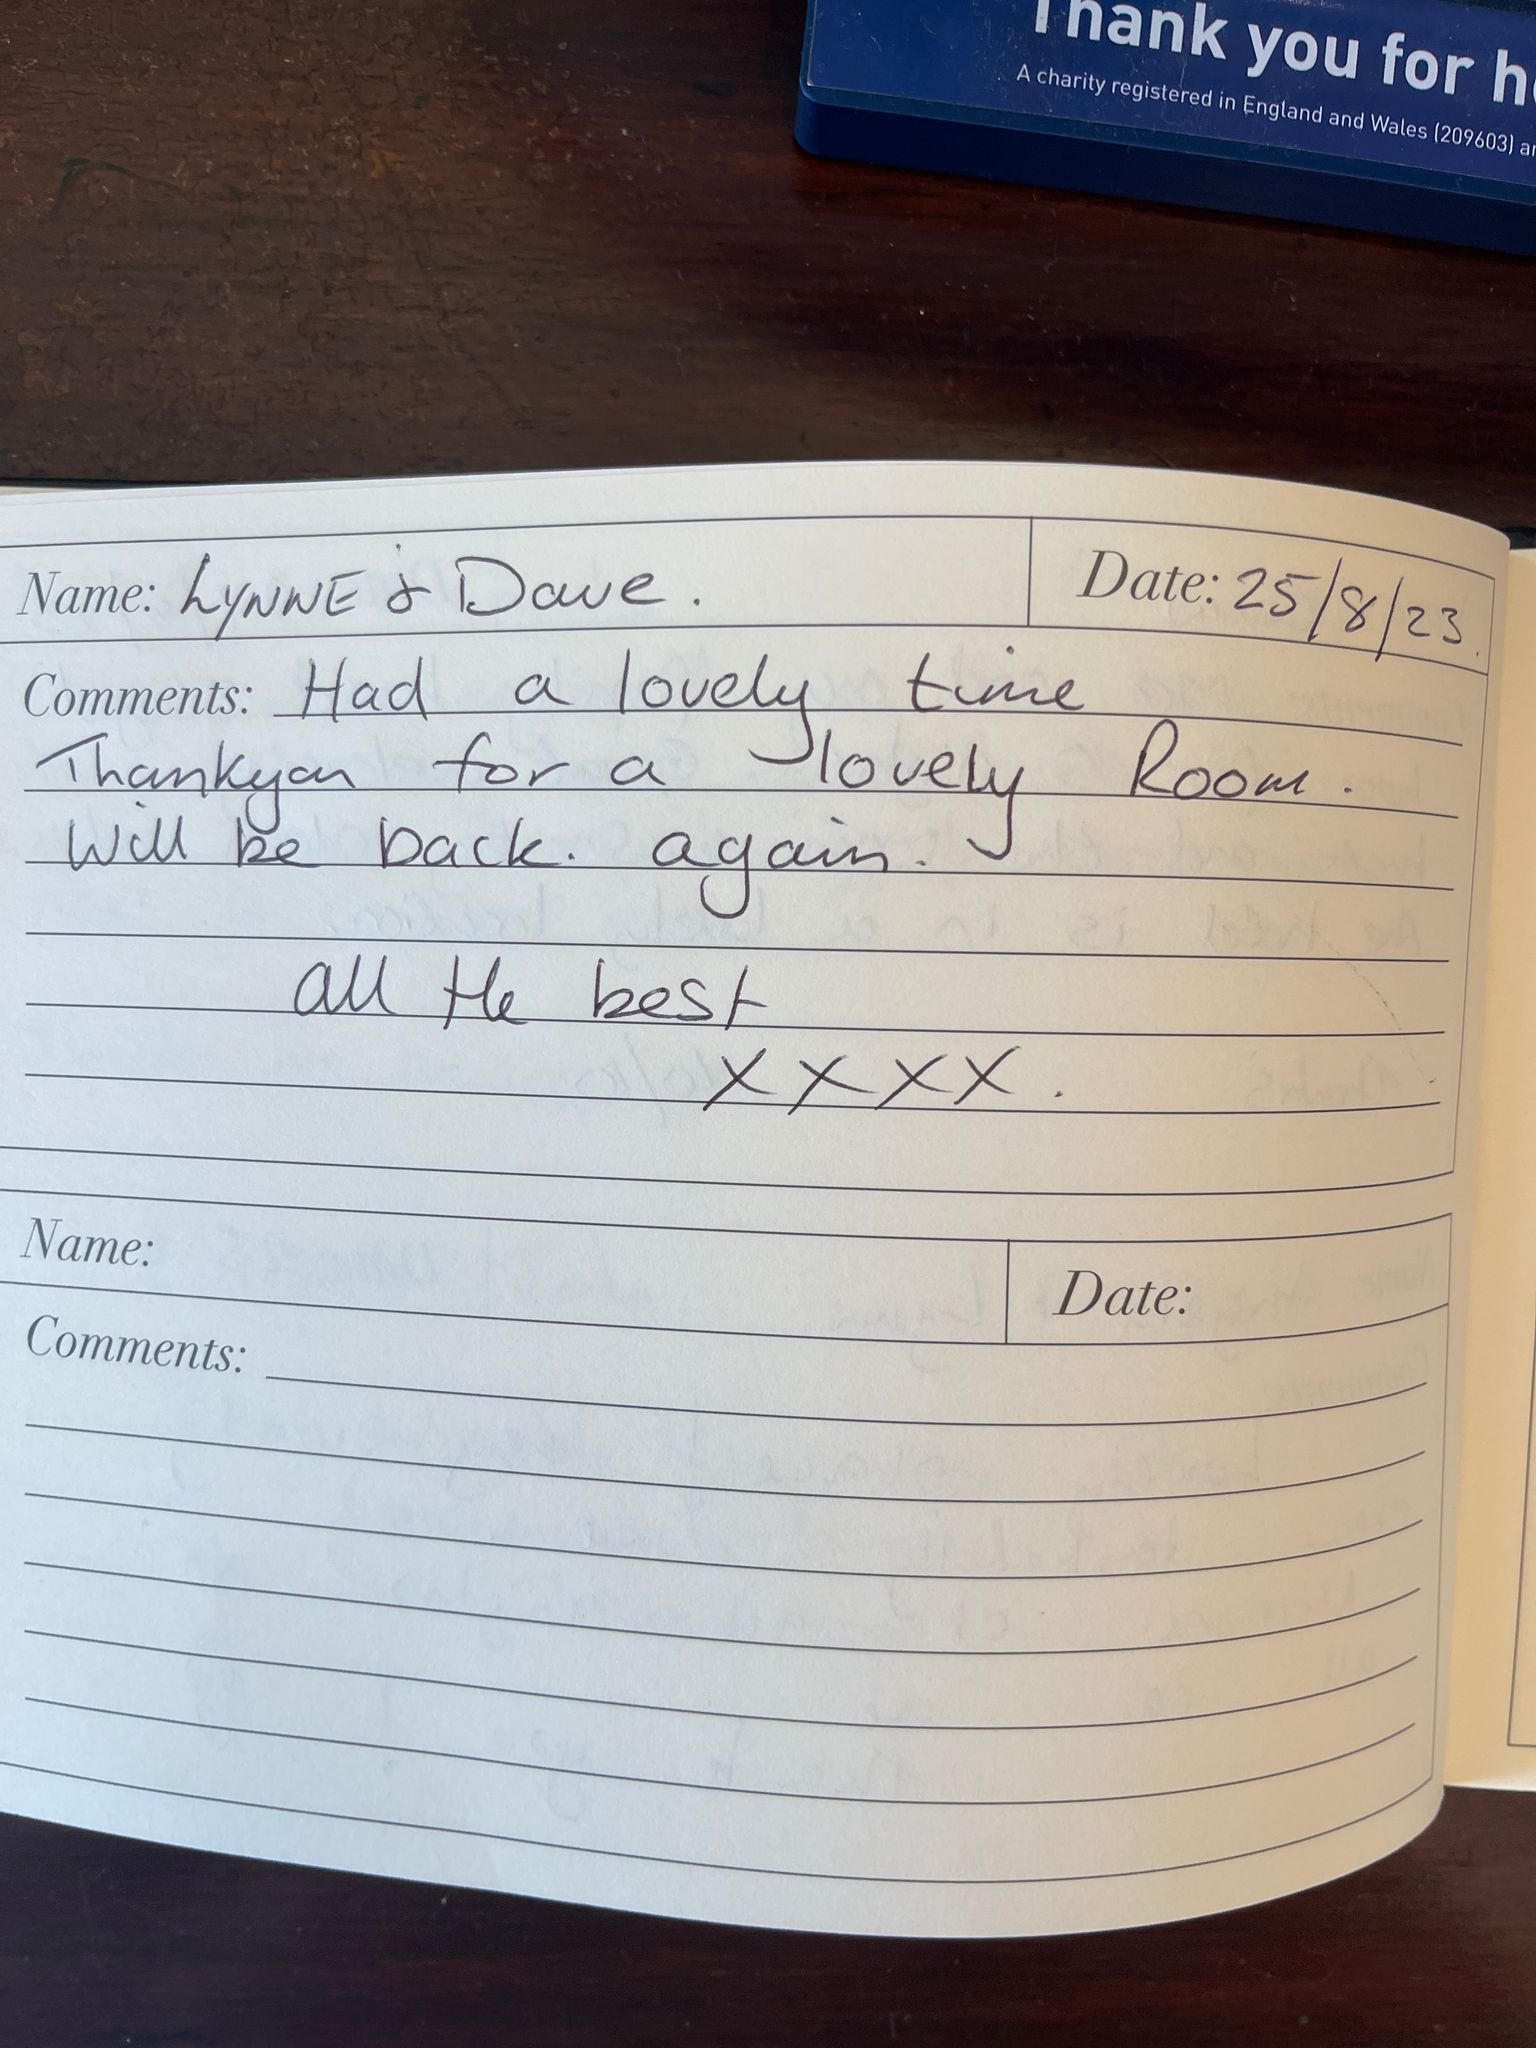 Thank you for h
A charity registered in England and Wales (209603) a
Name: LYNNE & Dave.
Date: 25/8/23.
Comments: Had a lovely time
Thankyou for a lovely Room.
Will be back. again.
all the best
xxxx.
Name:
Date:
Comments: